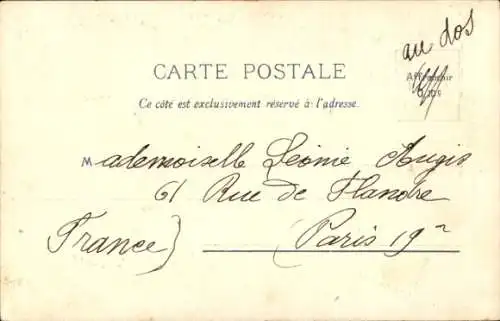 au dos
CARTE POSTALE
Affranchir
Ce côté est exclusivement réservé à l'adresse.
Mademoiselle Léonie Augis
61 Rue de Flandre
France)
Paris 19e